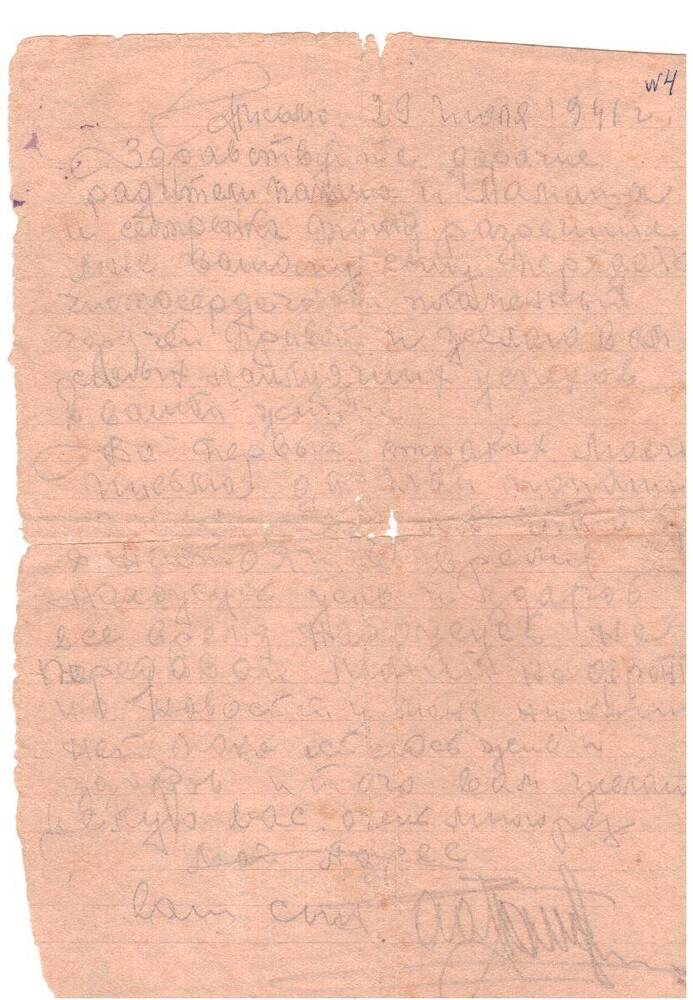 №4
Письмо 29 июля 1941 г
Здравствуйте дорогие
радители папаша и мамаша
и сестренка разрешите
мне вашому сыну передать
чистосердечный пламенный
горячей привет и желаю вам
самых наилучших успехов
в вашей жизни
Во первых строках моего
письма
в настоящие время
нахожусь жив и здоров
все время нахожусь на
передовой линии на фронт
но новостей у меня
нет пока остаюсь жив и
здоров и того вам желаю
целую вас очень много раз
мой адрес
ваш сын